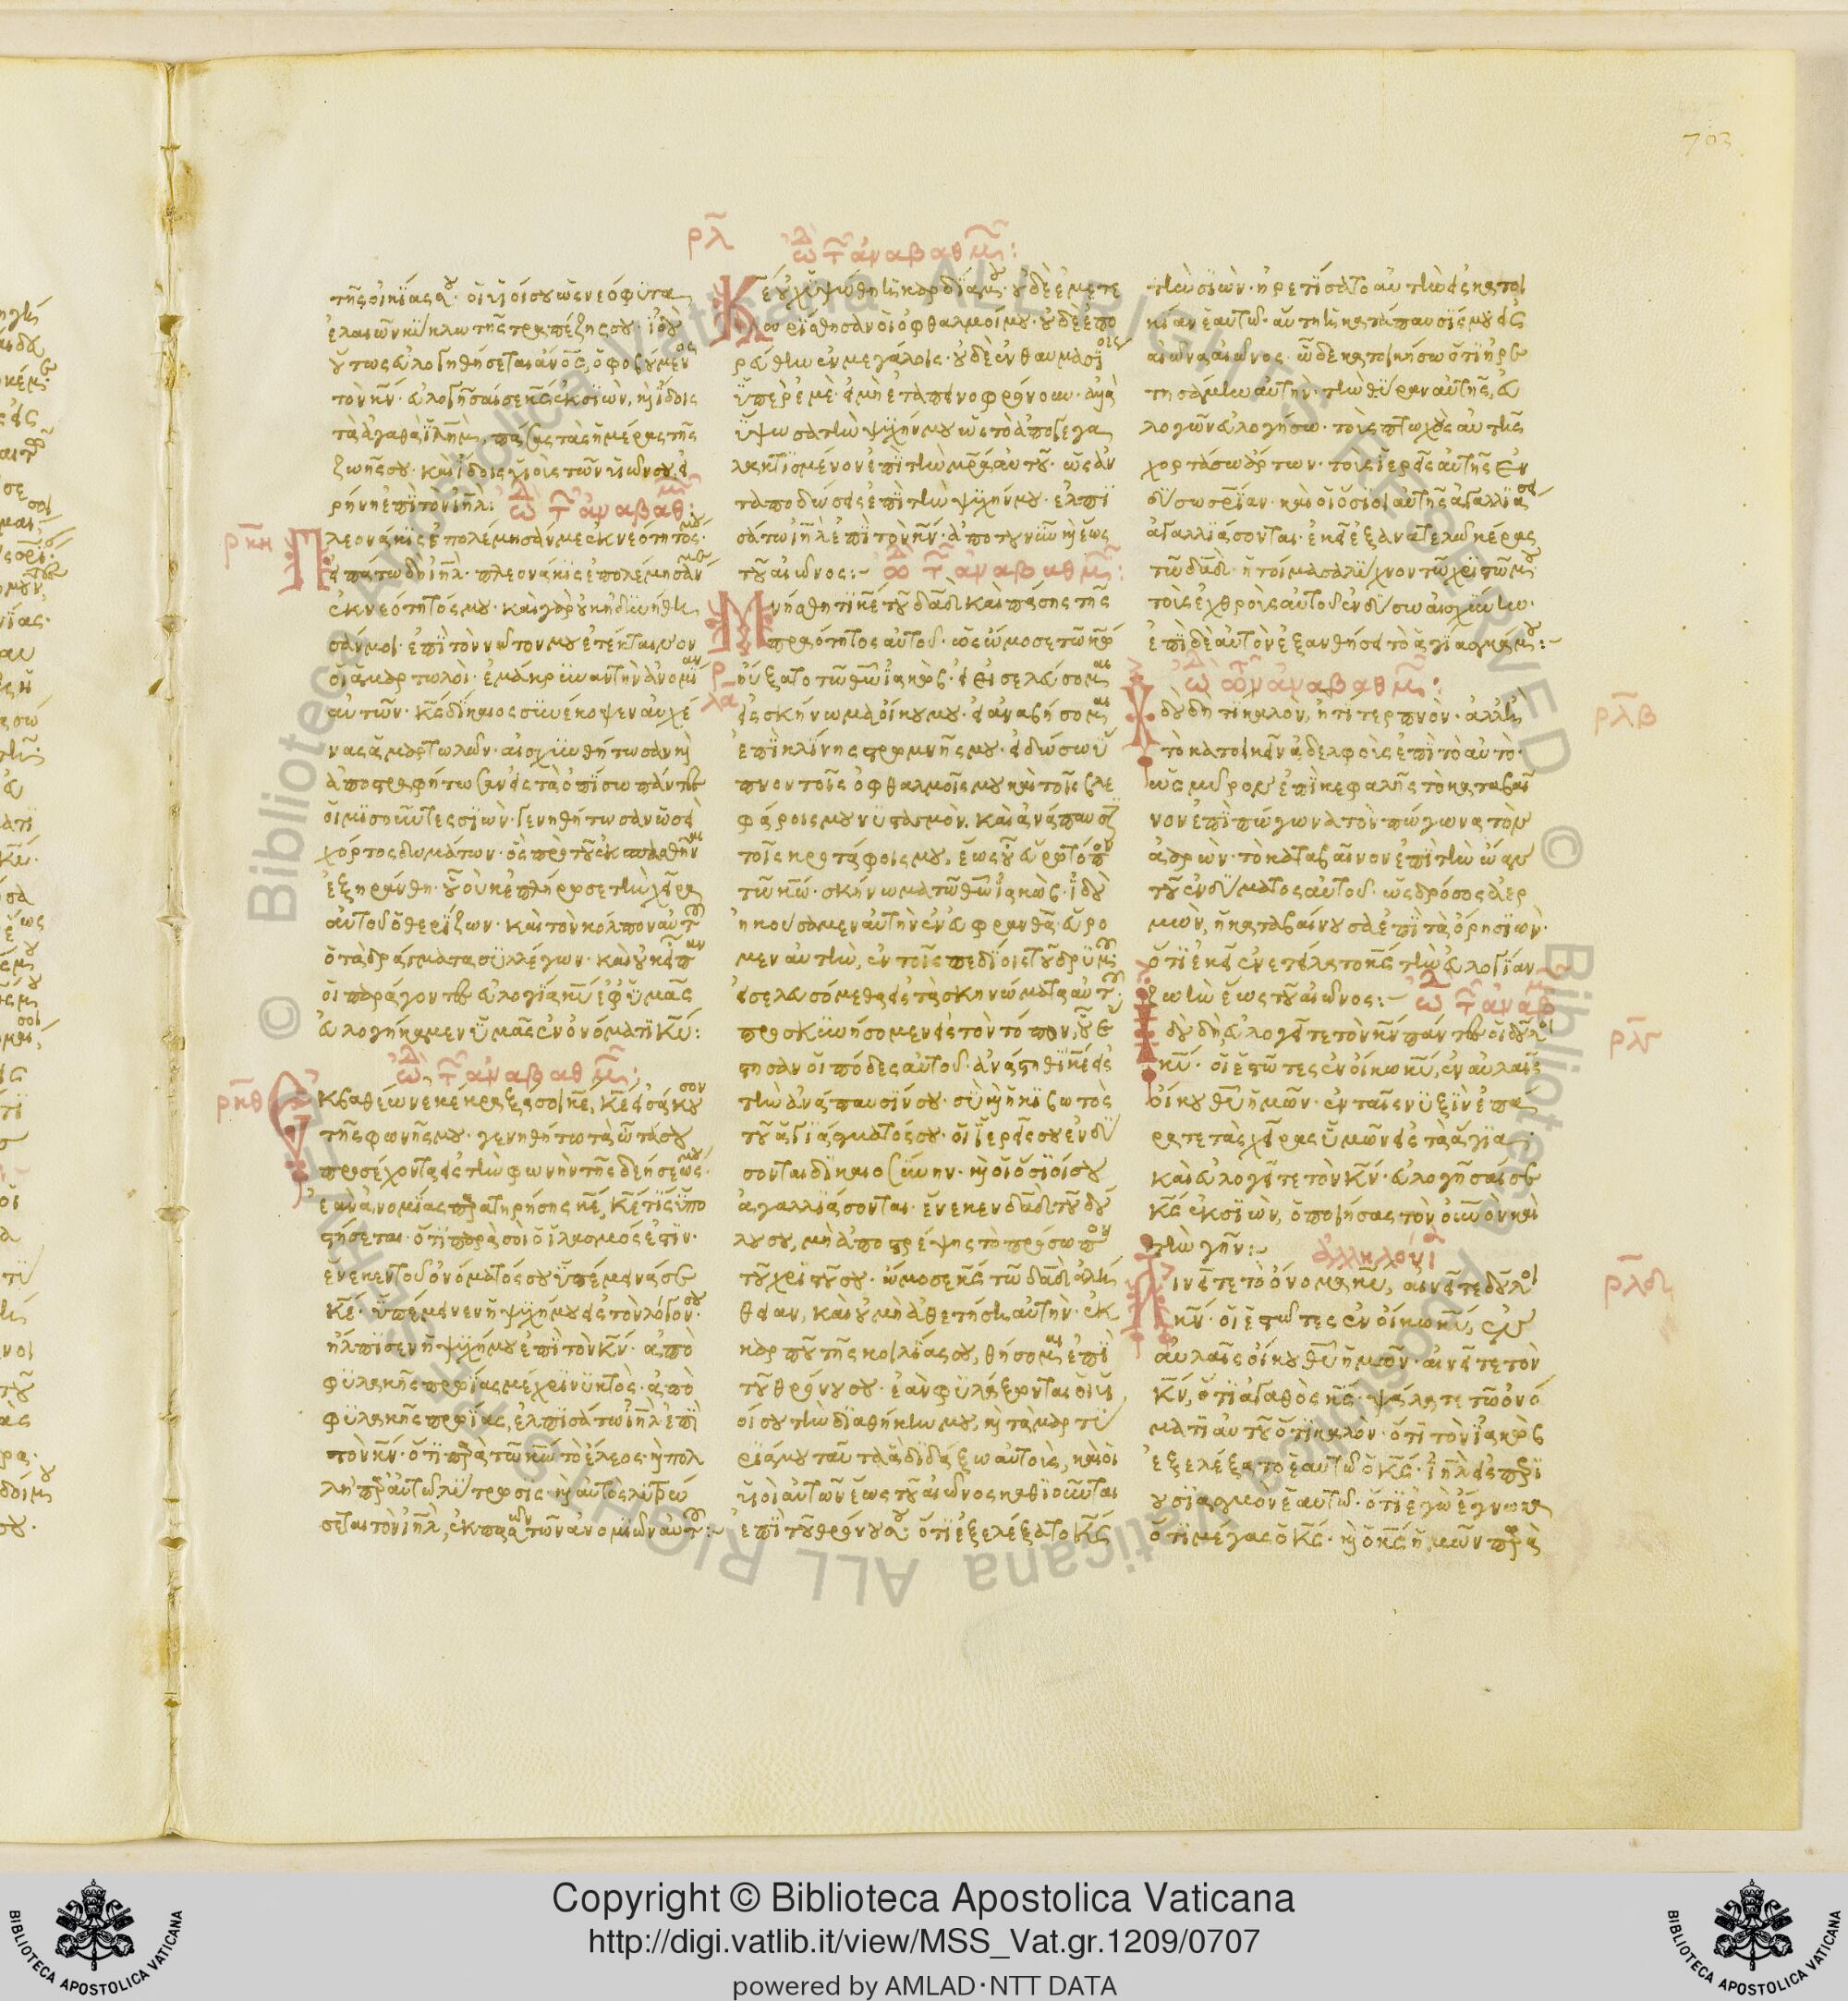 703
ρλ ὠδὴ τῶν ἀναβαθμῶν:
τῆς οἰκίας σου· οἱ υἱοί σου ὡς νεόφυτα
ἐλαιῶν κύκλω τῆς τραπέζης σου· ἰδοὺ
οὕτως εὐλογηθήσεται ἄνος, ὁ φοβούμενος
τὸν κν· εὐλογῆσαι σε κς ἐκ σιὼν, κỳ ἴδοις
τὰ ἀγαθὰ ἰλημ, πάσας τὰς ἡμέρας τῆς
ζωῆς σου· καὶ ἴδοις υἱοὺς τῶν υἱῶν σου, εἰ
ρήνη ἐπὶ τὸν ιηλ: ὠδὴ τῶν ἀναβαθμῶν:
ρκη
Πλεονάκις ἐπολέμησάν με ἐκ νεότητός μου·
εἰπάτω δὴ ιηλ· πλεονάκις ἐπολέμησάν με
ἐκ νεότητός μου· καὶ γὰρ οὐκ ἠδυνήθη
σάν μοι· ἐπὶ τὸν νῶτον μου ἐτέκταινον
οἱ ἁμαρτωλοὶ· ἐμάκρυναν τὴν ἀνομίαν
αὐτῶν· κς δίκαιος συνέκοψεν αὐχέ
νας ἁμαρτωλῶν· αἰσχυνθήτωσαν κỳ
ἀποστραφήτωσαν εἰς τὰ ὀπίσω πάντες
οἱ μισοῦντες σιὼν· γενηθήτωσαν ὡσεὶ
χόρτος δωμάτων· ὃς πρὸ τοῦ ἐκσπασθῆναι
ἐξηράνθη· οὗ οὐκ ἐπλήρωσε τὴν χεῖρα
αὐτοῦ ὁ θερίζων· καὶ τὸν κόλπον αὐτοῦ
ὁ τὰ δράγματα συλλέγων· καὶ οὐκ εἶπαν
οἱ παράγοντες εὐλογία κυ ἐφ' ὑμᾶς
εὐλογήκαμεν ὑμᾶς ἐν ὀνόματι κυ:
ὠδὴ τῶν ἀναβαθμῶν:
ρκθ
Ἐκ βαθέων ἐκέκραξά σοι κε, κε εἰσάκουσον
τῆς φωνῆς μου· γενηθήτω τὰ ὦτά σου
προσέχοντα εἰς τὴν φωνὴν τῆς δεήσεώς μου·
ἐὰν ἀνομίας παρατηρήσης κε, κε τίς ὑπο
στήσεται· ὅτι παρὰ σοὶ ὁ ἱλασμός ἐστιν·
ἕνεκεν τοῦ ὀνόματός σου ὑπέμεινά σε
κε· ὑπέμεινεν ἡ ψυχή μου εἰς τὸν λόγον σου·
ἤλπισεν ἡ ψυχή μου ἐπὶ τὸν κν· ἀπὸ
φυλακῆς πρωΐας μέχρι νυκτὸς· ἀπὸ
φυλακῆς πρωΐας, ἐλπισάτω ιηλ ἐπὶ
τὸν κν· ὅτι παρὰ τῶ κω τὸ ἔλεος· κỳ πολ
λὴ παρ' αὐτῶ λύτρωσις· κỳ αὐτὸς λυτρώ
σεται τὸν ιηλ, ἐκ πασῶν τῶν ἀνομιῶν αὐτοῦ:
Κε οὐχ ὑψώθη ἡ καρδία μου· οὐδὲ ἐμετε
ωρίσθησαν οἱ ὀφθαλμοί μου· οὐδὲ ἐπο
ρεύθην ἐν μεγάλοις· οὐδὲ ἐν θαυμασίοις
ὑπὲρ ἐμὲ· εἰ μὴ ἐταπεινοφρόνουν· ἀλλὰ
ὕψωσα τὴν ψυχήν μου ὡς τὸ ἀπογεγα
λακτισμένον ἐπὶ τὴν μρα αὐτοῦ· ὡς ἀν
ταποδώσεις ἐπὶ τὴν ψυχήν μου· ἐλπι
σάτω ιηλ ἐπὶ τὸν κν· ἀπὸ τοῦ νῦν κỳ ἕως
τοῦ αἰῶνος: ὠδὴ τῶν ἀναβαθμῶν:
ρλα
Μνήσθητι κε τοῦ δαδ καὶ πάσης τῆς
πραότητος αὐτοῦ· ὡς ὤμοσε τῶ κω
ηὔξατο τῶ θω ἰακὼβ· εἰ εἰσελεύσομαι
εἰς σκήνωμα οἴκου μου· εἰ ἀναβήσομαι
ἐπὶ κλίνης στρωμνῆς μου· εἰ δώσω ὕ
πνον τοῖς ὀφθαλμοῖς μου καὶ τοῖς βλε
φάροις μου νυσταγμὸν. καὶ ἀνάπαυσιν
τοῖς κροτάφοις μου, ἕως οὗ εὕρω τόπον
τῶ κω· σκήνωμα τῶ θω ἰακὼβ· ἰδοὺ
ἠκούσαμεν αὐτὴν ἐν εὐφραθᾶ· εὕρο
μεν αὐτὴν, ἐν τοῖς πεδίοις τοῦ δρυμοῦ·
εἰσελευσόμεθα εἰς τὰ σκηνώματα αὐτοῦ·
προσκυνήσομεν εἰς τὸν τόπον, οὗ ἔ
στησαν οἱ πόδες αὐτοῦ· ἀνάστηθι κε εἰς
τὴν ἀνάπαυσίν σου· σὺ κỳ ἡ κιβωτὸς
τοῦ ἁγιάσματός σου· οἱ ἱερεῖς σου ἐνδύ
σονται δικαιοσύνην· κỳ οἱ ὅσιοί σου
ἀγαλλιάσονται· ἕνεκεν δαδ τοῦ δού
λου σου, μὴ ἀποστρέψης τὸ πρόσωπον
τοῦ χριστοῦ σου· ὤμοσε κς τῶ δαδ ἀλή
θειαν, καὶ οὐ μὴ ἀθετήση αὐτὴν· ἐκ
καρποῦ τῆς κοιλίας σου, θήσομαι ἐπὶ
τοῦ θρόνου σου· ἐὰν φυλάξωνται οἱ υἱ
οί σου τὴν διαθήκην μου, κỳ τὰ μαρτύ
ριά μου ταῦτα ἃ διδάξω αὐτοὺς, καὶ οἱ
υἱοὶ αὐτῶν ἕως τοῦ αἰῶνος καθιοῦνται
ἐπὶ τοῦ θρόνου σου: ὅτι ἐξελέξατο κς
τὴν σιὼν· ἡρετίσατο αὐτὴν εἰς κατοι
κίαν ἑαυτῶ· αὕτη ἡ κατάπαυσίς μου εἰς
αἰῶνα αἰῶνος· ὧδε κατοικήσω ὅτι ἡρε
τησάμην αὐτὴν· τὴν θύραν αὐτῆς, εὐ
λογῶν εὐλογήσω· τοὺς πτωχοὺς αὐτῆς
χορτάσω ἄρτων· τοὺς ἱερεῖς αὐτῆς ἐν
δύσω σρίαν· καὶ οἱ ὅσιοι αὐτῆς ἀγαλλιάσει
ἀγαλλιάσονται· ἐκεῖ ἐξανατελῶ κέρας
τῶ δαδ· ἡτοίμασα λύχνον τῶ χριστῶ μου
τοὺς ἐχθροὺς αὐτοῦ ἐνδύσω αἰσχύνην·
ἐπὶ δὲ αὐτὸν ἐξανθήσει τὸ ἁγίασμά μου:
ὠδὴ τῶν ἀναβαθμῶν:
ρλβ
Ἰδοὺ δὴ τί καλὸν, ἢ τί τερπνὸν· ἀλλ' ἢ
τὸ κατοικεῖν ἀδελφοὺς ἐπὶ τὸ αὐτὸ·
ὡς μύρον ἐπὶ κεφαλῆς τὸ καταβαῖ
νον ἐπὶ πώγωνα τὸν πώγωνα τὸν
ἀαρὼν· τὸ καταβαῖνον ἐπὶ τὴν ὤαν
τοῦ ἐνδύματος αὐτοῦ· ὡς δρόσος ἀερ
μὼν, ἡ καταβαίνουσα ἐπὶ τὰ ὄρη σιὼν·
ὅτι ἐκεῖ ἐνετείλατο κς τὴν εὐλογίαν
ζωὴν ἕως τοῦ αἰῶνος: ὠδὴ τῶν ἀναβ
ρλγ
Ἰδοὺ δὴ, εὐλογεῖτε τὸν κν πάντες οἱ δοῦλοι
κυ· οἱ ἑστῶτες ἐν οἴκω κυ, ἐν αὐλαῖς
οἴκου θυ ἡμῶν· ἐν ταῖς νυξὶν ἐπά
ρατε τὰς χεῖρας ὑμῶν εἰς τὰ ἅγια·
καὶ εὐλογεῖτε τὸν κν· εὐλογῆσαι σε
κς ἐκ σιὼν, ὁ ποιήσας τὸν οὐνον καὶ
τὴν γῆν: ἀλληλούϊα
ρλδ
Αἰνεῖτε τὸ ὄνομα κυ, αἰνεῖτε δοῦλοι
κν· οἱ ἑστῶτες ἐν οἴκω κυ, ἐν
αὐλαῖς οἴκου θυ ἡμῶν· αἰνεῖτε τὸν
κν, ὅτι ἀγαθὸς κς· ψάλατε τῶ ὀνό
ματι αὐτοῦ ὅτι καλὸν· ὅτι τὸν ἰακὼβ
ἐξελέξατο ἑαυτῶ ὁ κς· ιηλ εἰς περι
ουσιασμὸν ἑαυτῶ· ὅτι ἐγὼ ἔγνωκα
ὅτι μέγας ὁ κς· κỳ ὁ κς ἡμῶν παρὰ
Copyright © Biblioteca Apostolica Vaticana
http://digi.vatlib.it/view/MSS_Vat.gr.1209/0707
powered by AMLAD·NTT DATA
BIBLIOTECA APOSTOLICA VATICANA
BIBLIOTECA APOSTOLICA VATICANA
© Biblioteca Apostolica Vaticana ALL RIGHTS RESERVED
© Biblioteca Apostolica Vaticana ALL RIGHTS RESERVED